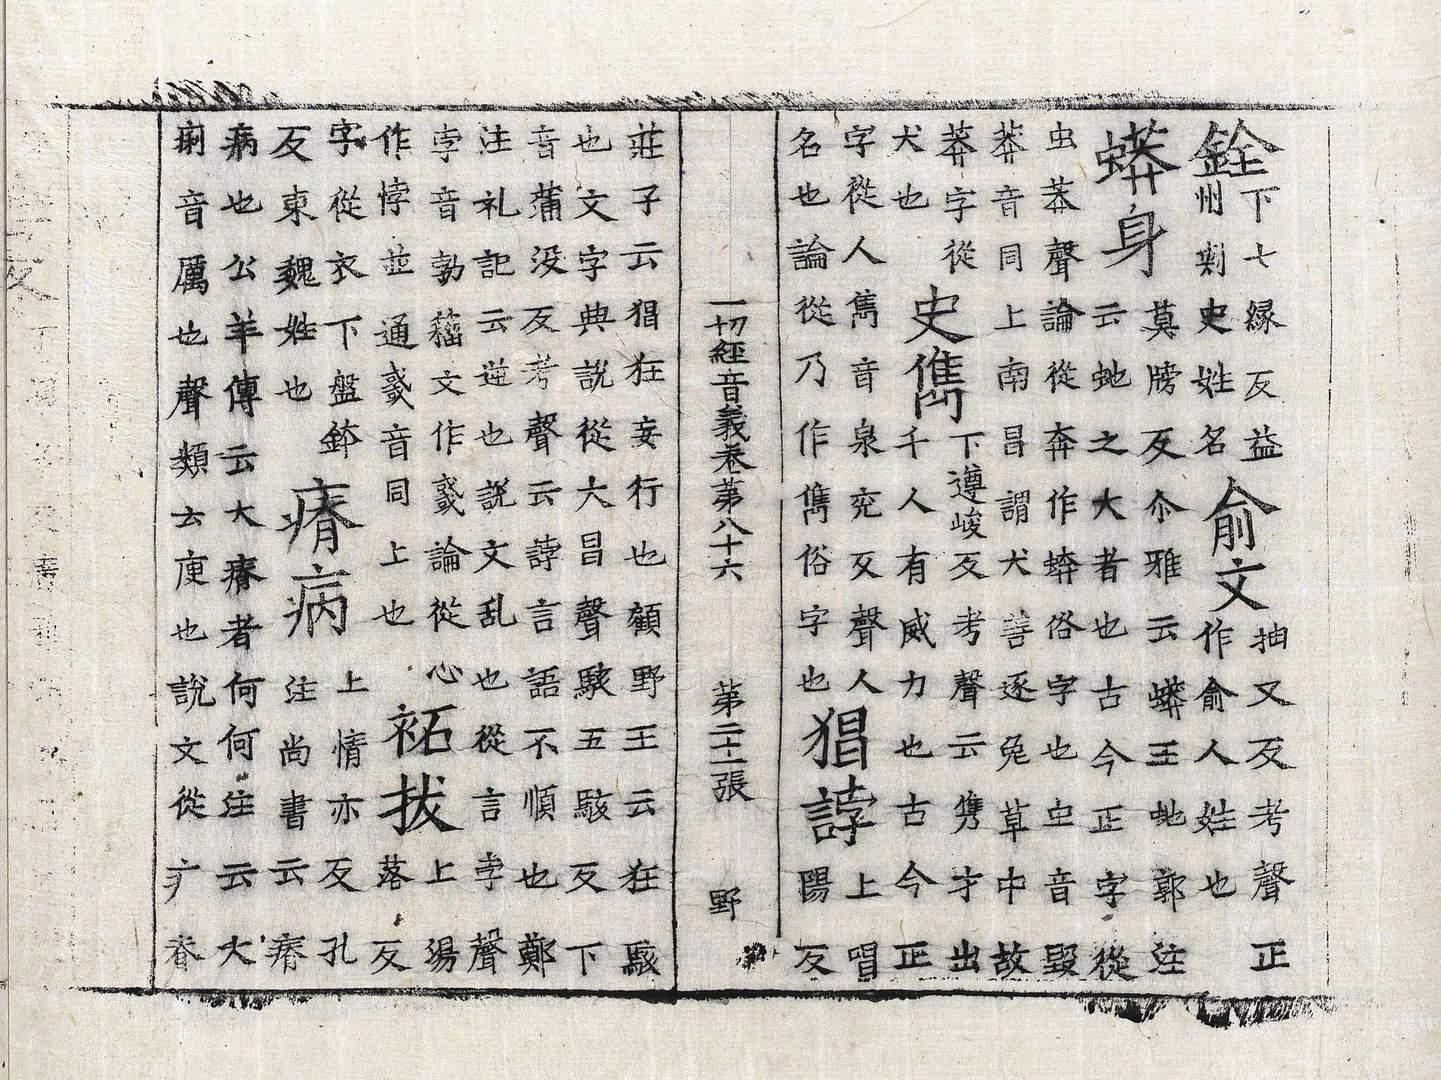 銓下七緣反益
州刺史姓名
俞文抽又反考聲正
作俞人姓也
蟒身莫牓反尒雅云蟒王虵郭注
云虵之大者也古今正字從
虫莽聲論從奔作蟒俗字也虫音毀
莽音同上南昌謂犬善逐兔草中故
莽字從
犬也
史儁下遵峻反考聲云雋才出
千人有威力也古今正
字從人雋音泉兖反聲人
名也論從乃作雋俗字也
猖誖上唱
陽反
一切經音義卷第八十六 第二十二張 野
莊子云猖狂妄行也顧野王云狂駭
也文字典說從犬昌聲駭五駭反下
音蒲没反考聲云誖言語不順也鄭
注礼記云逆也說文乱也從言孛聲
孛音勃籀文作㦎論從心
作悖並通㦎音同上也
袥拔上湯
落反
字從衣下盤鉢
反東魏姓也
瘠病上情亦反孔
注尚書云瘠
病也公羊傳云大瘠者何何注云大
痢音厲也聲類云庾也說文從疒脊